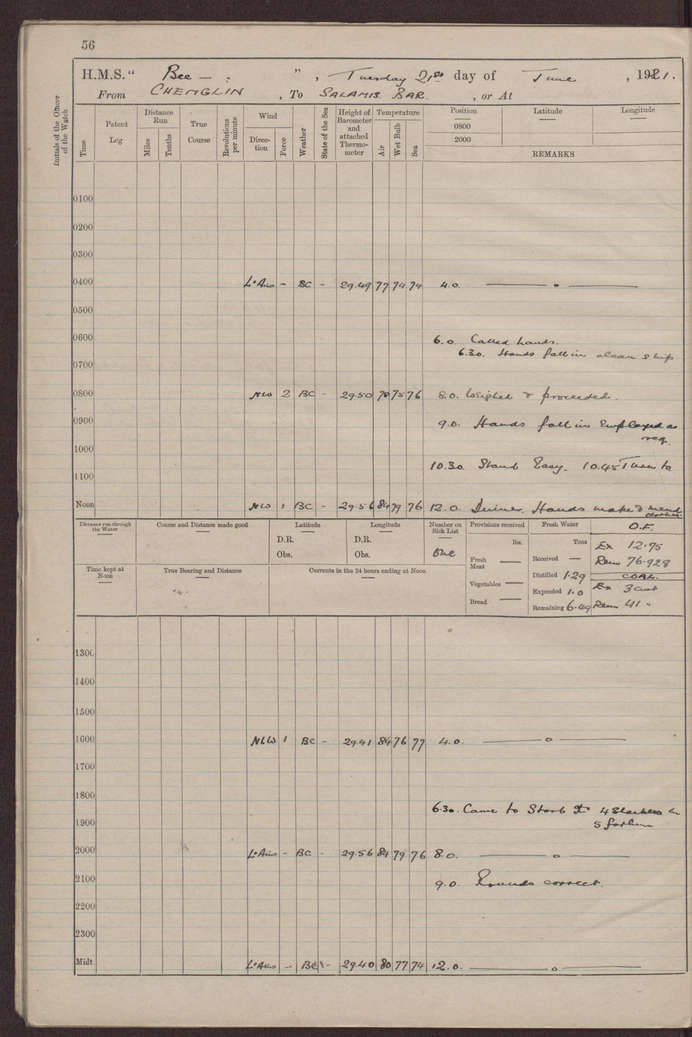 56
H.M.S. " Bee — . " , Tuesday 21st day of June , 1921.
From CHENGLIN , To SALAMIS BAR. , or At
Initials of the Officer of the Watch
Time
Patent Log
Distance Run
Miles
Tenths
True Course
Revolutions per minute
Wind
Direction
Force
Weather
State of the Sea
Height of Barometer and attached Thermometer
Temperature
Air
Wet Bulb
Sea
Position
Latitude
Longitude
0800
2000
REMARKS
0100
0200
0300
0400 Lt Airs - BC - 29.49 77 74 74 4.0. ——— o ———
0500
0600 6.0. Called hands.
6.30. Hands fall in clean ship
0700
0800 NW 2 BC - 29.50 78 75 76 8.0. Weighed & proceeded.
0900 9.0. Hands fall in Employed as req.
1000
10.30. Stand Easy. 10.45 Turn to
1100
Noon NW 1 BC - 29.56 84 79 76 12.0. Dinner. Hands make & mend clothes.
Distance run through the Water
Course and Distance made good
Latitude
D.R.
Obs.
Longitude
D.R.
Obs.
Number on Sick List
One
Provisions received
lbs.
Fresh Meat —
Vegetables —
Bread —
Fresh Water
Tons
Received —
Distilled 1.29
Expended 1.0
Remaining 6.49
O.F.
Ex 12.75
Rem 76.928
COAL.
Ex 3 cwt
Rem 41 "
Time kept at Noon
True Bearing and Distance
Currents in the 24 hours ending at Noon
1300
1400
1500
1600 NLW 1 BC - 29.41 84 76 77 4.0. ——— o ———
1700
1800
6.30. Came to Starb 4 Shackles in
5 fathoms
1900
2000 Lt Airs - BC - 29.56 84 79 76 8.0. ——— o ———
2100 9.0 Rounds correct.
2200
2300
Midt. Lt Airs - BC - 29.40 80 77 74 12.0. ——— o ———